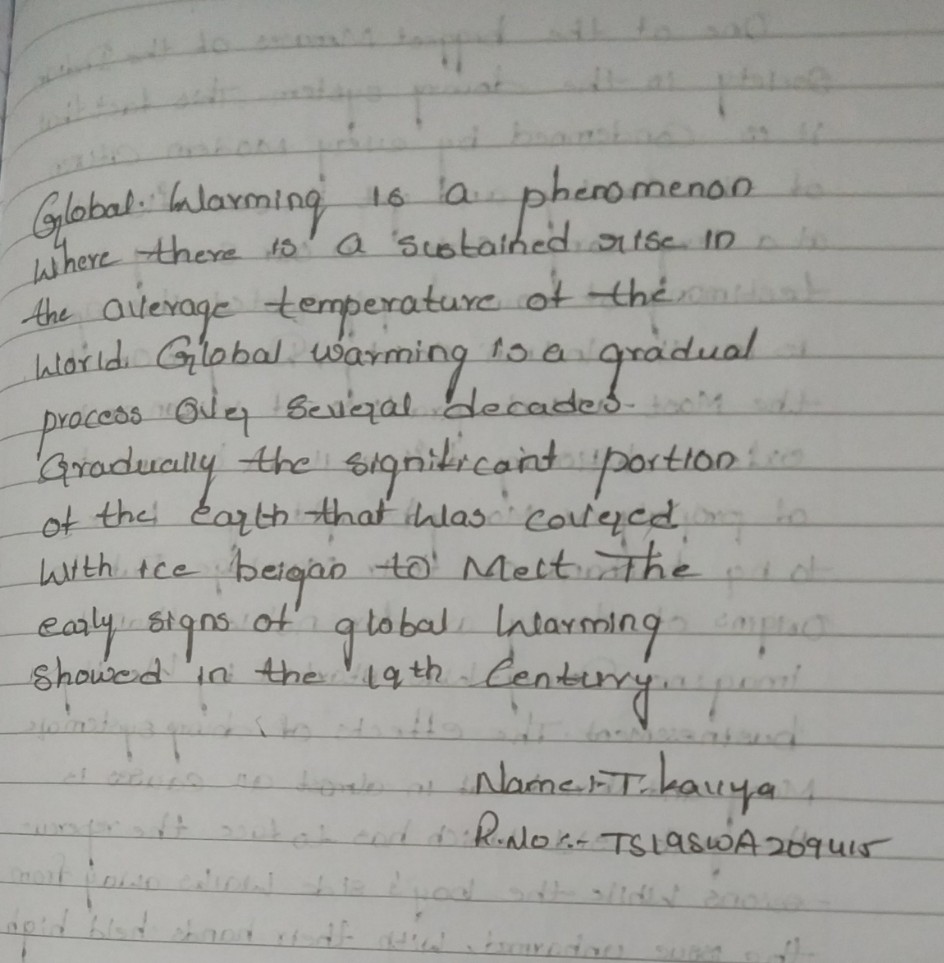 Global Warming is a phenomenon
Where there is a sustained rise in
the average temperature of the
World. Global warming is a gradual
process over several decades.
Gradually the significant portion
of the earth that was covered
with ice beigan to Melt. The
early signs of global Warming
showed in the 19th Century.
Name:- T. kavya
R.No:- TS19SWA269415